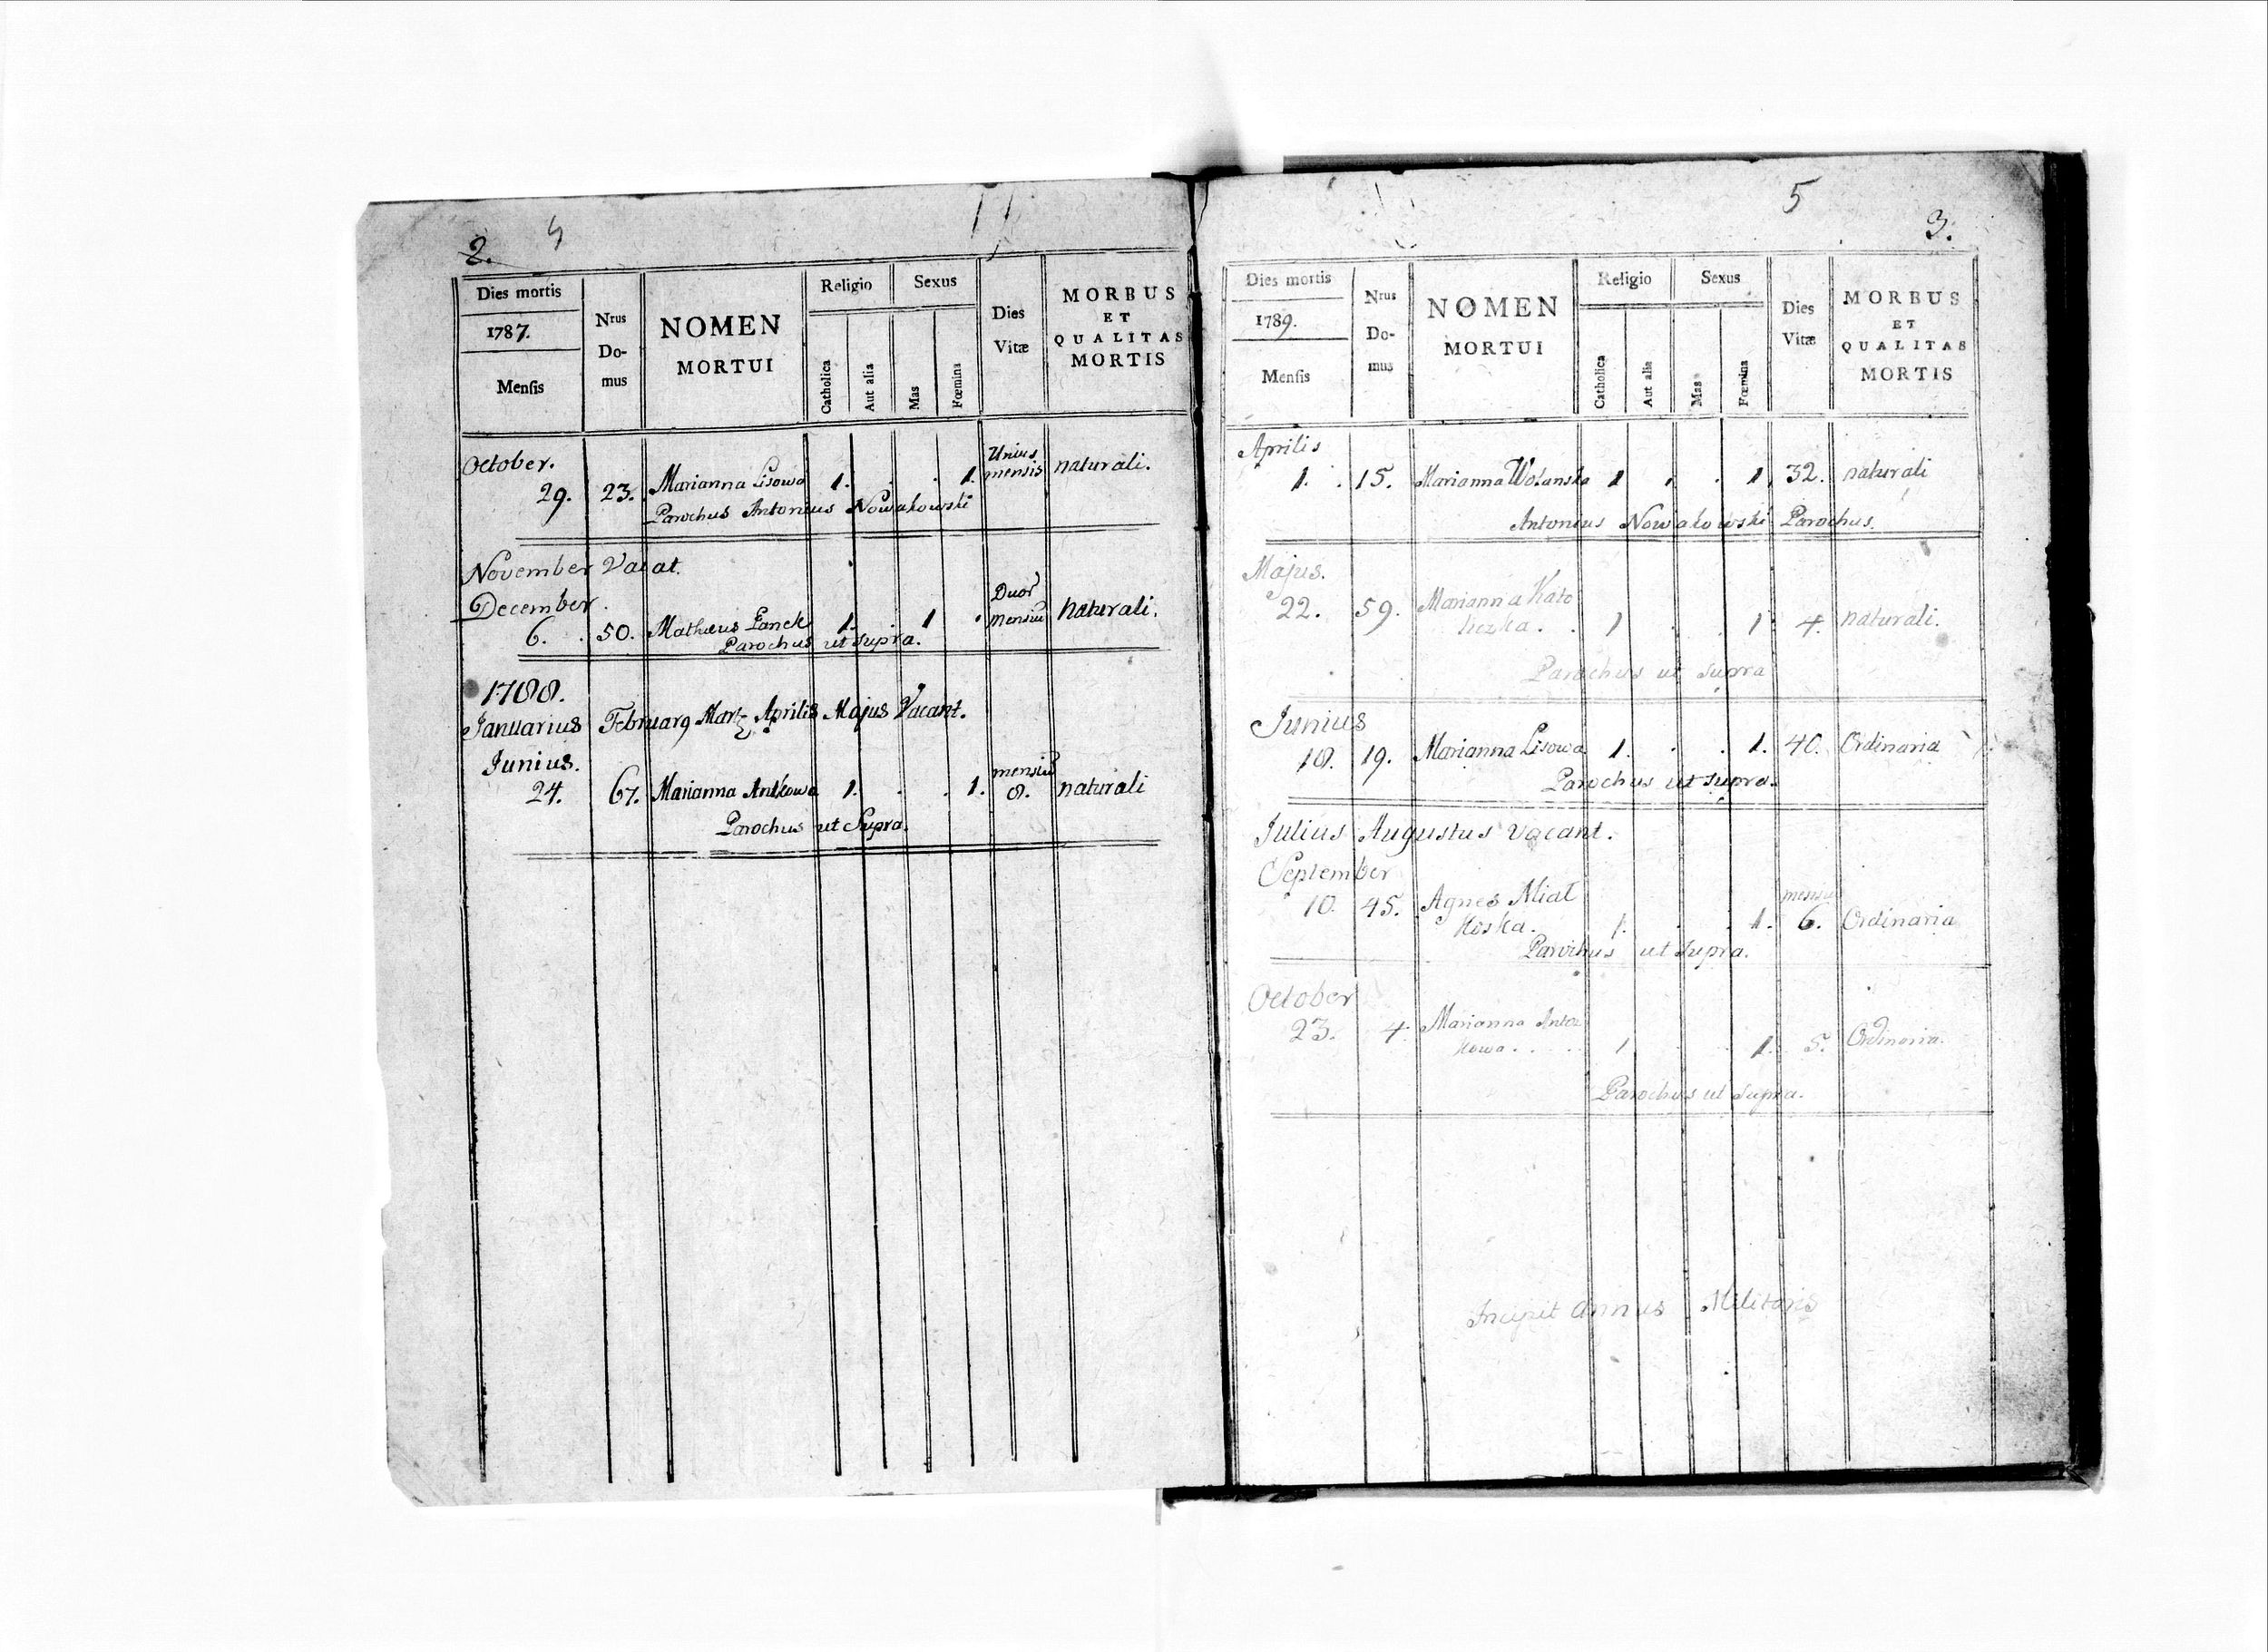 2. 4
Dies mortis
1787.
Mensis
Nrus
Do-
mus
NOMEN
MORTUI
Religio
Catholica
Aut alia
Sexus
Mas
Fœmina
Dies
Vitæ
MORBUS
ET
QUALITAS
MORTIS
October.
29. 23. Marianna Lisowa 1. . . 1. Unius mensis naturali.
Parochus Antonius Nowakowski
November Vacat.
December.
6. . 50. Mathæus Panek 1. . 1 . Duor mensiu naturali.
Parochus ut supra.
1788.
Januarius Februarg Mart Aprilis Majus Vacant.
Junius.
24. 67. Marianna Antkowa 1. . . 1. mensiu 8. naturali
Parochus ut Supra.
5
3.
Dies mortis
1789.
Mensis
Nrus
Do-
mus
NOMEN
MORTUI
Religio
Catholica
Aut alia
Sexus
Mas
Fœmina
Dies
Vitæ
MORBUS
ET
QUALITAS
MORTIS
Aprilis
1. . 15. Marianna Wolanska 1 . . 1. 32. naturali
Antonius Nowakowski Parochus.
Majus.
22. 59. Marianna Kato
liczka . . 1 . . 1 4. naturali.
Parochus ut supra
Junius
18. 19. Marianna Lisowa 1. . . 1. 40. Ordinaria
Parochus ut supra.
Julius Augustus vacant.
September
10. 45. Agnes Miał
koska. 1. . . 1. mensiu 6. Ordinaria
Parochus ut supra.
October
23. 4. Marianna
kowa . . . . 1 . . 1. 5. Ordinaria.
Parochus ut supra.
Incipit Annus Militaris